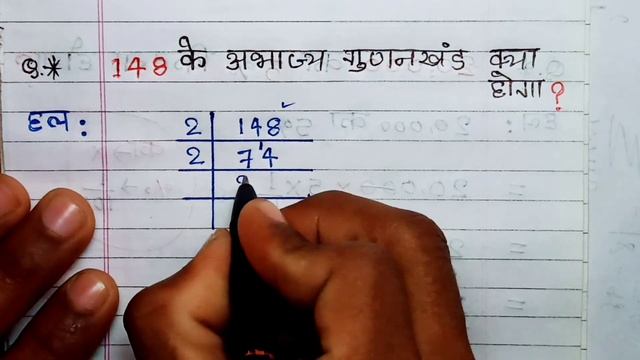 Q.* 148 के अभाज्य गुणनखंड क्या
होगा?
हल :
2 148
2 74